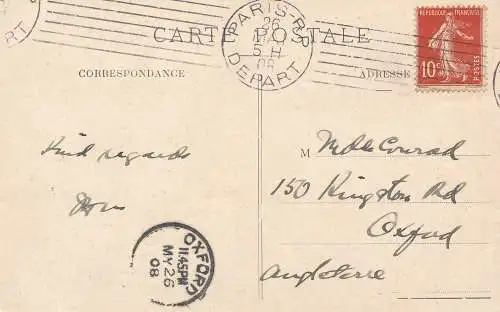 PARIS R.P.
26
5 H
08
DEPART
CARTE POSTALE
CORRESPONDANCE
ADRESSE
REPUBLIQUE FRANÇAISE
10c
POSTES
Kind regards
M Mdlle Conrad
150 Kingston Rd
Oxford
Angleterre
OXFORD
11.45PM
MY 26
08